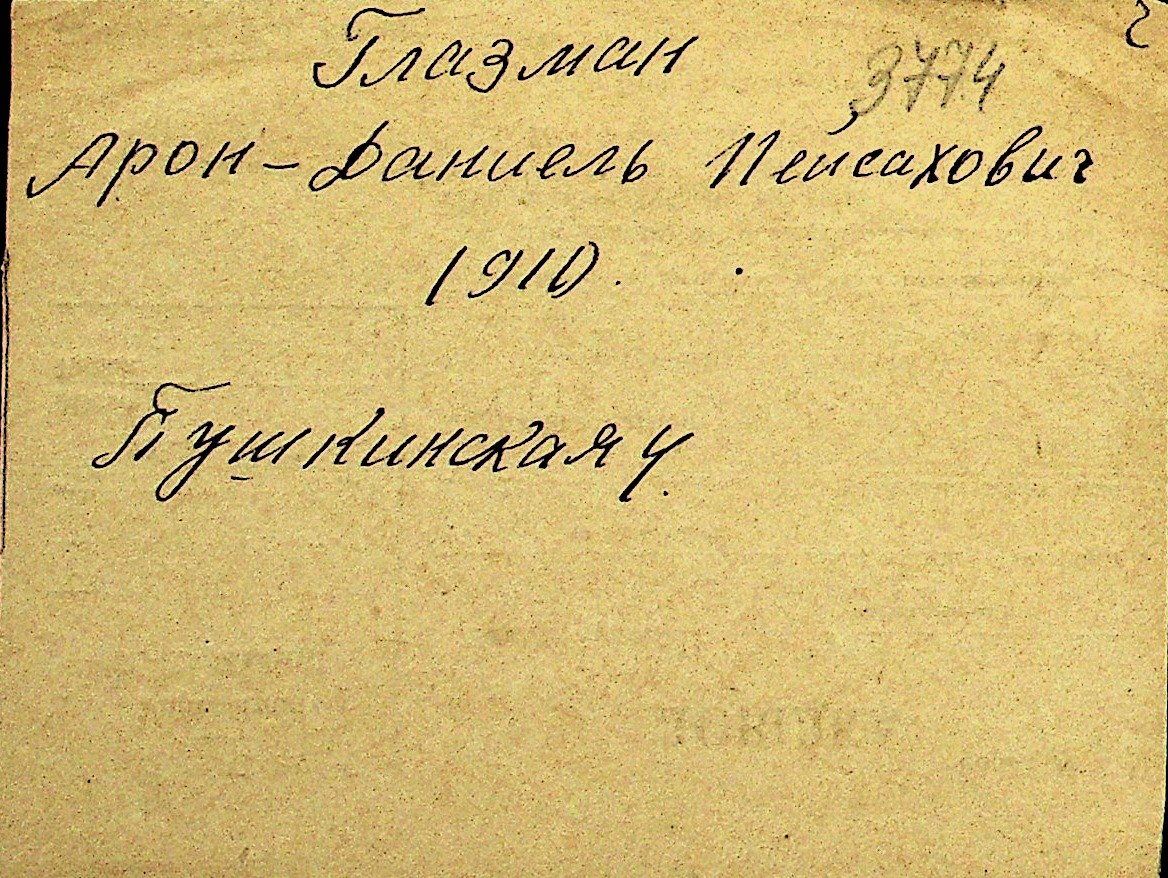 Глазман
3774
Арон-Даниель Пейсахович
1910.
Пушкинская 4.